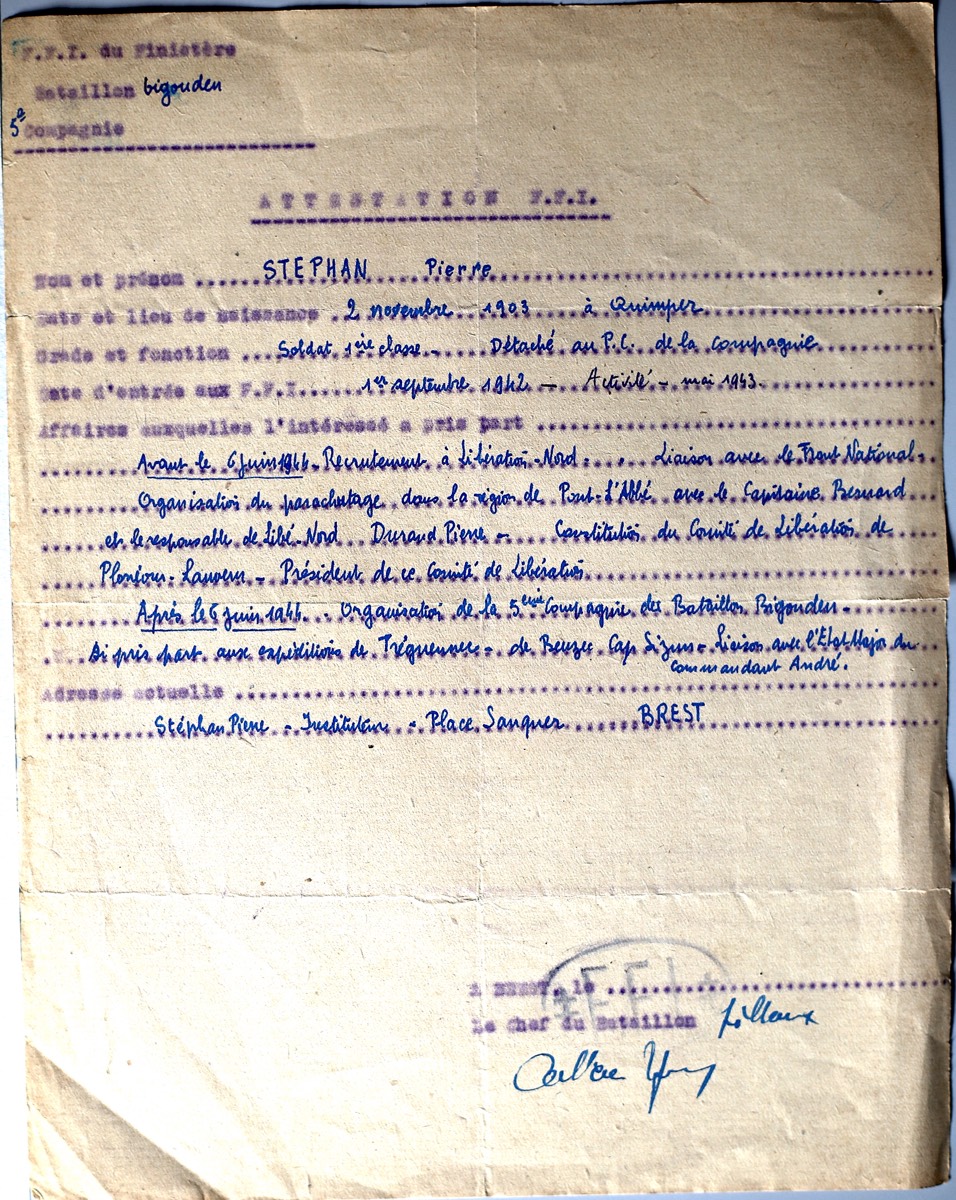 F.F.I. du Finistère
Bataillon bigouden
5e Compagnie
ATTESTATION F.F.I.
Nom et prénom ...... STEPHAN Pierre
Date et lieu de naissance . 2 novembre 1903 à Quimper
Grade et fonction .... Soldat 1ère classe - Détaché au P.C. de la Compagnie
Date d'entrée aux F.F.I. .... 1er septembre 1942 - Activité - mai 1943.
Affaires auxquelles l'intéressé a pris part ....
Avant le 6 juin 1944 - Recrutement à Libération-Nord - Liaison avec le Front National -
Organisation du parachutage dans la région de Pont-L'Abbé avec le Capitaine Besnard
et le responsable de Libé-Nord Durand Pierre - Constitution du Comité de Libération de
Plonéour-Lanvern - Président de ce Comité de Libération
Après le 6 juin 1944 - Organisation de la 5ème Compagnie des Bataillon Bigouden -
Ai pris part aux expéditions de Tréguennec - de Beuzec Cap Sizun - Liaison avec l'Etat-Major du
Commandant André.
Adresse actuelle ....
Stéphan Pierre - Instituteur - Place Sanquer BREST
FFI
A BREST, le ....
Le Chef du Bataillon